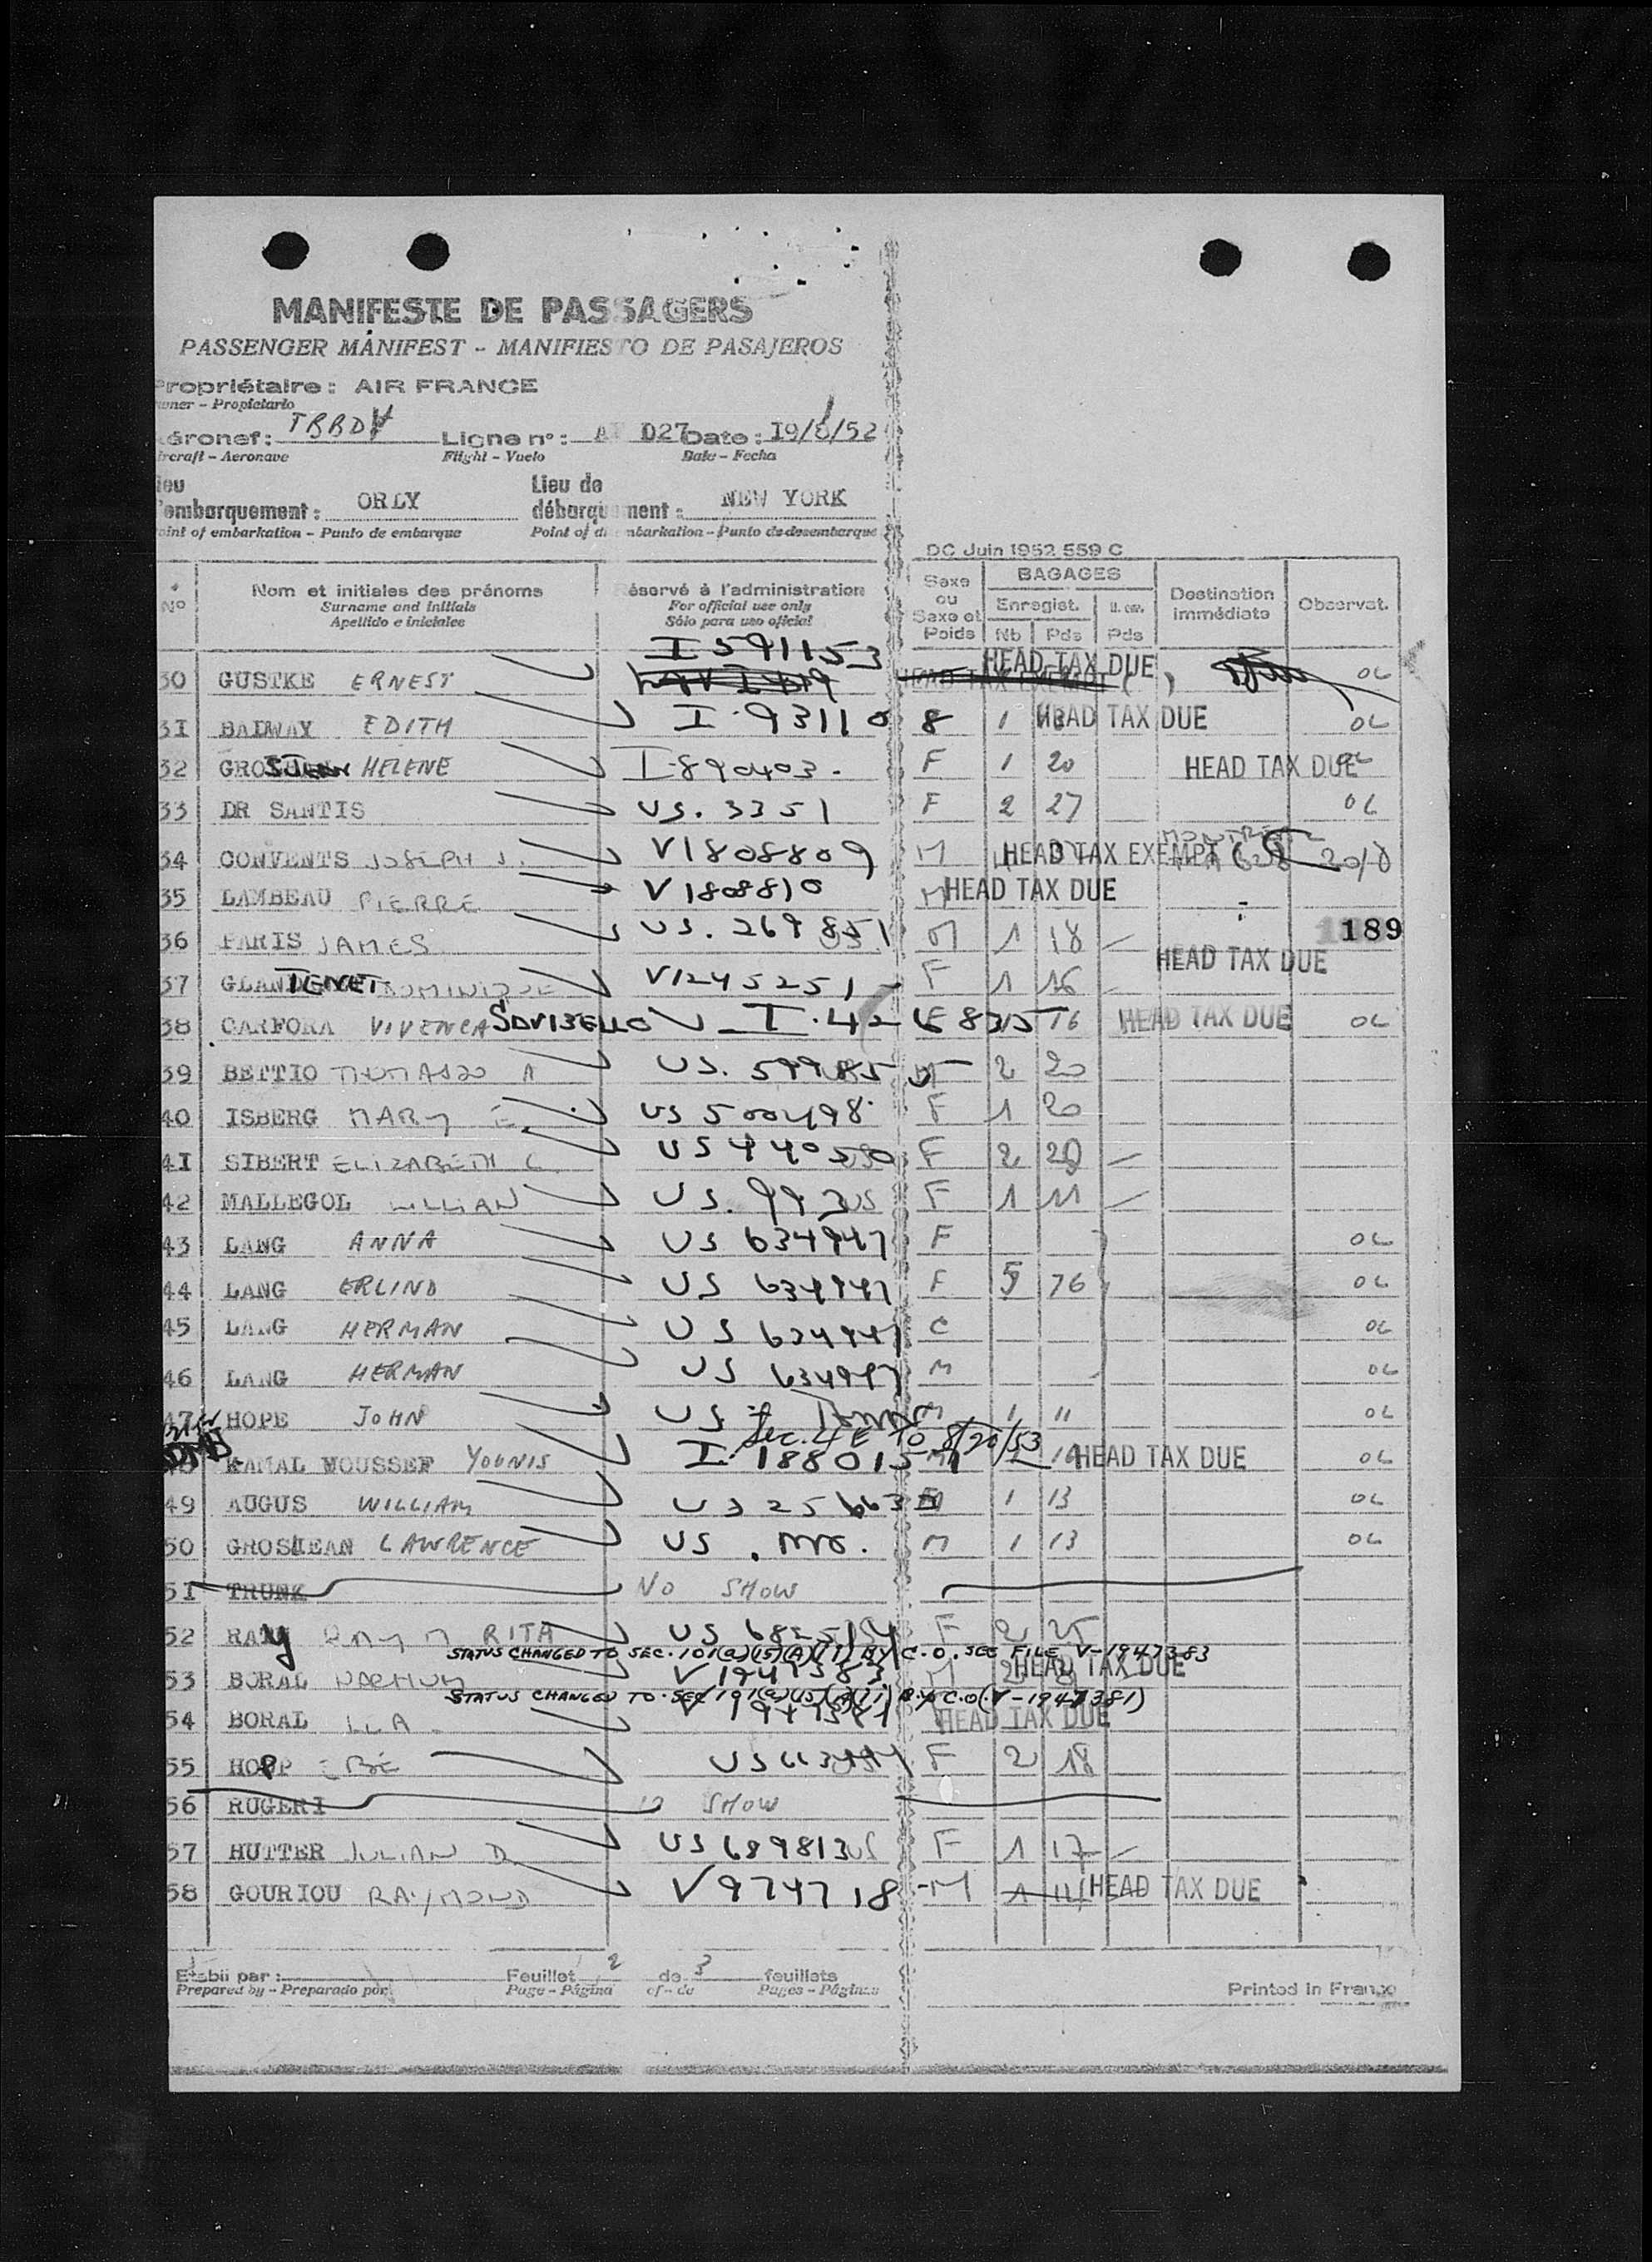 MANIFESTE DE PASSAGERS
PASSENGER MANIFEST - MANIFIESTO DE PASAJEROS
Propriétaire : AIR FRANCE
Owner - Propietario
Aéronef : Ligne n° : D27 Date : 19/8/52
Aircraft - Aeronave Flight - Vuelo Date - Fecha
Lieu d'embarquement : ORLY Lieu de débarquement : NEW YORK
Point of embarkation - Punto de embarque Point of disembarkation - Punto de desembarque
DC Juin 1952 559 C
N° Nom et initiales des prénoms Réservé à l'administration Sexe ou Sexe et Poids BAGAGES Destination immédiate Observat.
Surname and initials For official use only Enregist. Nb Pds Pds
Apellido e iniciales Sólo para uso oficial
30 GUSTKE ERNEST I 591153 HEAD TAX DUE OL
31 BAIWAY EDITH I. 93110 8 1 HEAD TAX DUE OL
32 HELENE I-890403. F 1 20 HEAD TAX DUE
33 DR SANTIS US. 3351 F 2 27 OL
34 CONVENTS JOSEPH J. V1808809 M HEAD TAX EXEMPT
35 LAMBEAU PIERRE V1808810 M HEAD TAX DUE
189
36 PARIS JAMES US. 269851 M 1 18 —
37 DOMINIQUE V1245251 F 1 16 — HEAD TAX DUE
38 CARFORA VIVENCA SDVIBELLO I. 42 16 HEAD TAX DUE OL
39 BETTIO US. 599 2 20
40 ISBERG MARY E. US 500498 F 1 20
41 SIBERT ELIZABETH C. US 440550 F 2 —
42 MALLEGOL LILLIAN US. 99 F 1 11 —
43 LANG ANNA US 634947 F OL
44 LANG ERLIND US 634947 F 5 76 OL
45 LANG HERMAN US 634947 C OL
46 LANG HERMAN US 634947 M OL
47 HOPE JOHN US M 1 11 OL
Sec. 4 E to 8/20/53
KAMAL MOUSSEF YOUNIS I. 188015 HEAD TAX DUE OL
49 AUGUS WILLIAM US 25663 1 13 OL
50 GROSJEAN LAWRENCE US . M 1 13 OL
51 TRUNK NO SHOW
52 RAY RITA US 6825 F 2 25
STATUS CHANGED TO SEC. 101(a)(15)(A)(ii) BY C.O. SEE FILE V-1947383
53 BORAL V 1947383 M HEAD TAX DUE
STATUS CHANGED TO SEC 101(a)(15)(A)(ii) BY C.O (V-1947381)
54 BORAL V 1947381 HEAD TAX DUE
55 HOPP US F 2 18
56 RUGERI SHOW
57 HUTTER JULIAN D. US 689813 F 1 17 —
58 GOURIOU RAYMOND V974718 M HEAD TAX DUE
Etabli par : Feuillet 2 de 3 feuillets
Prepared by - Preparado por Page - Página of - de Pages - Páginas
Printed in France